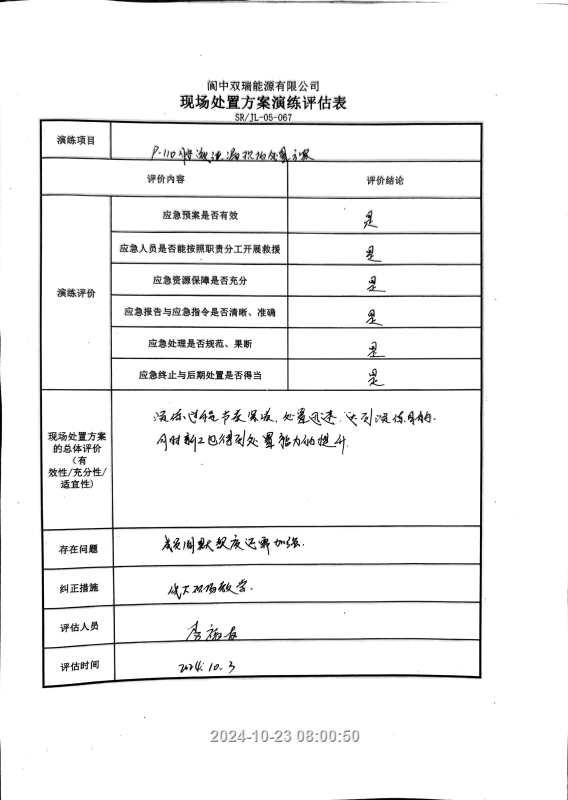 阆中双瑞能源有限公司
现场处置方案演练评估表
SR/JL-05-067
演练项目
P-110 泄漏现场处置方案
评价内容 评价结论
演练评价
应急预案是否有效 是
应急人员是否能按照职责分工开展救援 是
应急资源保障是否充分 是
应急报告与应急指令是否清晰、准确 是
应急处理是否规范、果断 是
应急终止与后期处置是否得当 是
现场处置方案
的总体评价
(有
效性/充分性/
适宜性)
演练过程节奏紧凑,处置迅速,达到演练目的.
同时新工也得到处置能力的提升.
存在问题 成员间默契度还需加强.
纠正措施 教学.
评估人员 李
评估时间 2024.10.3
2024-10-23 08:00:50